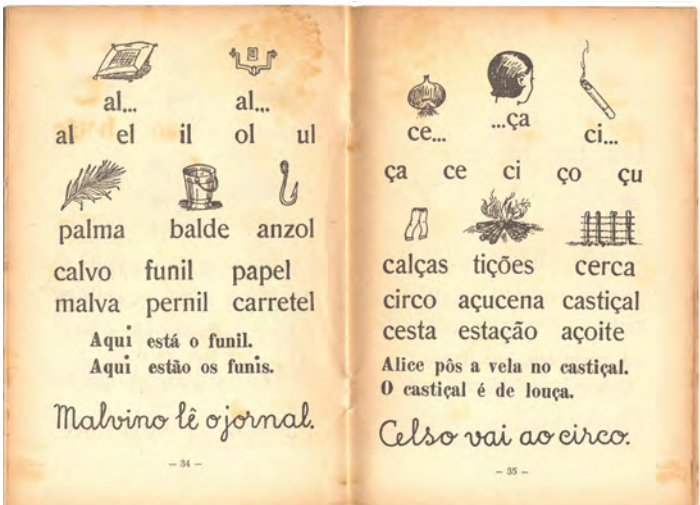 al... al...
al el il ol ul
palma balde anzol
calvo funil papel
malva pernil carretel
Aqui está o funil.
Aqui estão os funis.
Malvino lê o jornal.
– 34 –
ce... ...ça ci...
ça ce ci ço çu
calças tições cerca
circo açucena castiçal
cesta estação açoite
Alice pôs a vela no castiçal.
O castiçal é de louça.
Celso vai ao circo.
– 35 –